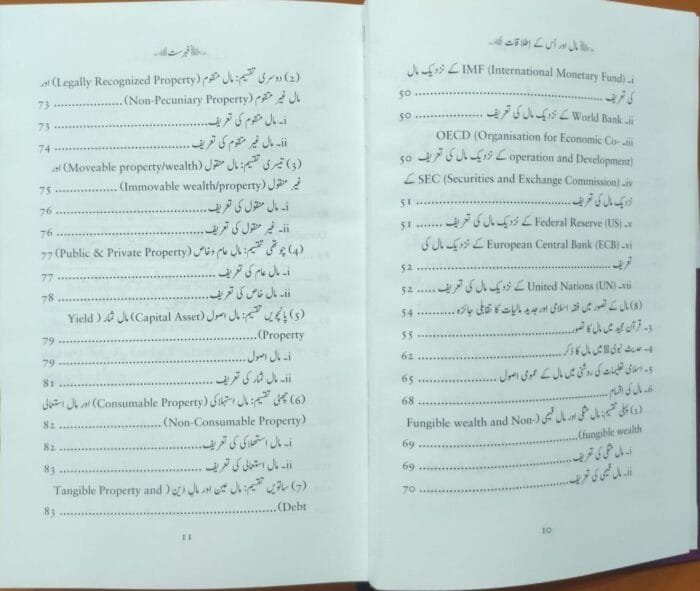 مال اور اُس کے اطلاقات
i۔ IMF (International Monetary Fund) کے نزدیک مال
کی تعریف ........ 50
ii۔ World Bank کے نزدیک مال کی تعریف ........ 50
iii۔ OECD (Organisation for Economic Co-
operation and Development) کے نزدیک مال کی تعریف 50
iv۔ SEC (Securities and Exchange Commission) کے
نزدیک مال کی تعریف ........ 51
v۔ Federal Reserve (US) کے نزدیک مال کی تعریف ...... 51
vi۔ European Central Bank (ECB) کے نزدیک مال کی
تعریف ........ 52
vii۔ United Nations (UN) کے نزدیک مال کی تعریف ..... 52
(8) مال کے تصور میں فقہ اسلامی اور جدید مالیات کا تقابلی جائزہ ........ 54
3۔ قرآن مجید میں مال کا تصور ........ 55
4۔ حدیث نبوی ﷺ میں مال کا ذکر ........ 62
5۔ اسلامی تعلیمات کی روشنی میں مال کے عمومی اصول ........ 65
6۔ مال کی اقسام ........ 68
(1) پہلی تقسیم: مال مثلی اور مال قیمی (Fungible wealth and Non-
fungible wealth) ........ 69
i۔ مال مثلی کی تعریف ........ 69
ii۔ مال قیمی کی تعریف ........ 70
10
فہرست
(2) دوسری تقسیم: مال متقوم (Legally Recognized Property) اور
مال غیر متقوم (Non-Pecuniary Property) ........ 73
i۔ مال متقوم کی تعریف ........ 73
ii۔ مال غیر متقوم کی تعریف ........ 74
(3) تیسری تقسیم: مال منقول (Moveable property/wealth) اور
غیر منقول (Immovable wealth/property) ........ 75
i۔ مال منقول کی تعریف ........ 76
ii۔ غیر منقول کی تعریف ........ 76
(4) چوتھی تقسیم: مالِ عام و خاص (Public & Private Property) 77
i۔ مال عام کی تعریف ........ 77
ii۔ مال خاص کی تعریف ........ 78
(5) پانچویں تقسیم: مال اصول (Capital Asset) مال ثمار (Yield
Property) ........ 79
i۔ مال اصول ........ 79
ii۔ مال ثمار کی تعریف ........ 81
(6) چھٹی تقسیم: مال استہلاکی (Consumable Property) اور مال استعمالی
(Non-Consumable Property) ........ 82
i۔ مال استھلاکی کی تعریف ........ 82
ii۔ مال استعمالی کی تعریف ........ 83
(7) ساتویں تقسیم: مال عین اور مالِ دَین (Tangible Property and
Debt) ........ 83
11